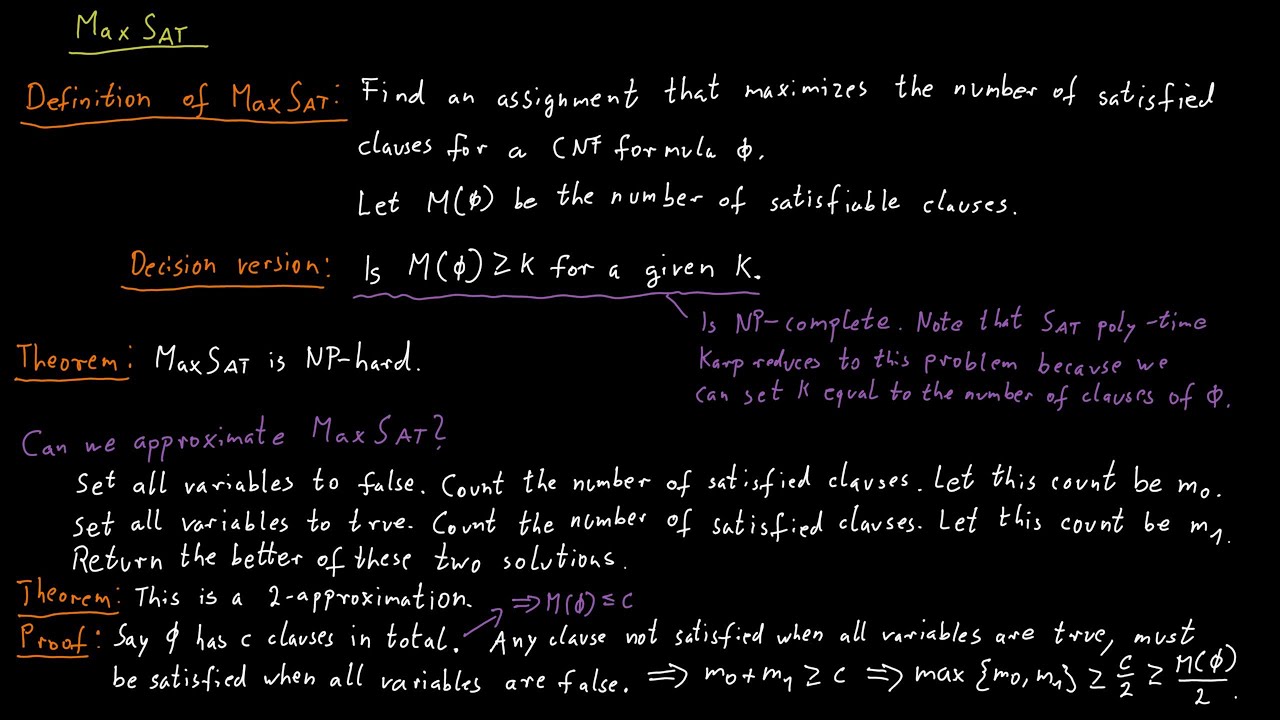 Max SAT
Definition of MaxSAT: Find an assignment that maximizes the number of satisfied
clauses for a CNF formula ϕ.
Let M(ϕ) be the number of satisfiable clauses.
Decision version: Is M(ϕ) ≥ K for a given K.
Is NP-complete. Note that SAT poly-time
Karp reduces to this problem because we
can set K equal to the number of clauses of ϕ.
Theorem: MaxSAT is NP-hard.
Can we approximate MaxSAT?
Set all variables to false. Count the number of satisfied clauses. Let this count be m₀.
Set all variables to true. Count the number of satisfied clauses. Let this count be m₁.
Return the better of these two solutions.
Theorem: This is a 2-approximation. ⇒ M(ϕ) ≤ c
Proof: Say ϕ has c clauses in total. Any clause not satisfied when all variables are true, must
be satisfied when all variables are false. ⇒ m₀ + m₁ ≥ c ⇒ max {m₀, m₁} ≥ c/2 ≥ M(ϕ)/2.